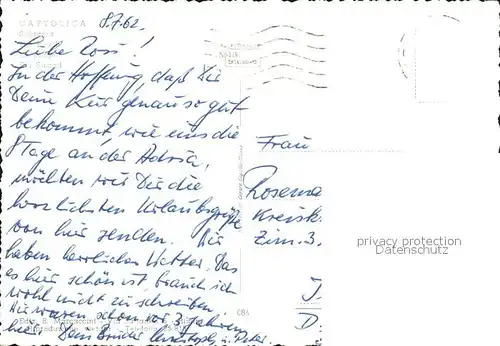 CATTOLICA
8.7.62.
Liebe Rosi!
In der Hoffnung, daß Dir
Deine Kur genau so gut
bekommt, wie uns die
8 Tage an der Adria,
möchten wir Dir die
herzlichsten Urlaubsgrüße
von hier senden. Wir
haben herrliches Wetter. Das
es hier schön ist, brauch ich
wohl nicht zu schreiben,
Wir waren schon vor 3 Jahren
hier. Dein Bruder u. Peter
Frau
Rosema
Kreisk
Zim. 3.
privacy protection
Datenschutz
D